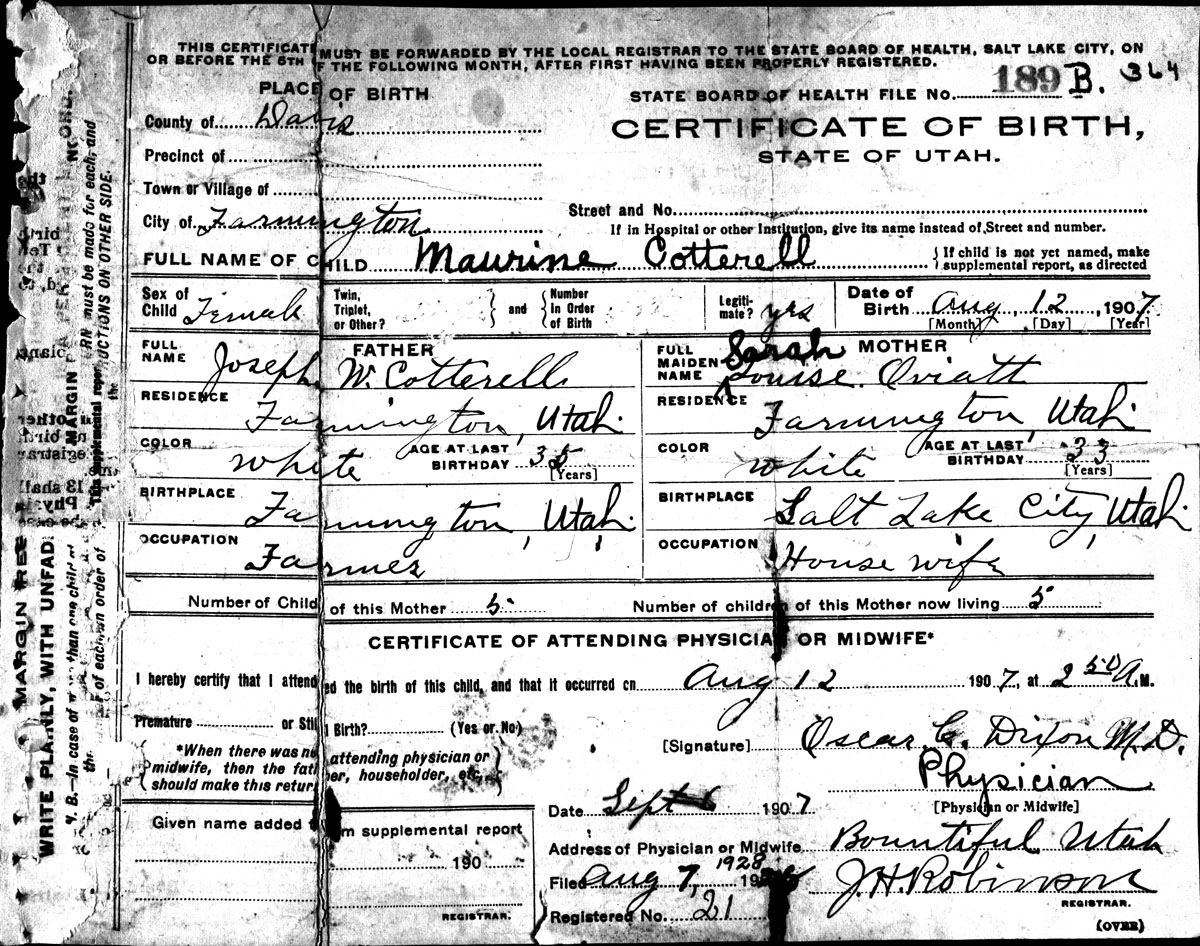 THIS CERTIFICATE MUST BE FORWARDED BY THE LOCAL REGISTRAR TO THE STATE BOARD OF HEALTH, SALT LAKE CITY, ON
OR BEFORE THE 5TH OF THE FOLLOWING MONTH, AFTER FIRST HAVING BEEN PROPERLY REGISTERED.
189 B. 364
PLACE OF BIRTH
STATE BOARD OF HEALTH FILE NO.
County of Davis
CERTIFICATE OF BIRTH,
Precinct of
STATE OF UTAH.
Town or Village of
City of Farmington
Street and No.
If in Hospital or other Institution, give its name instead of Street and number.
FULL NAME OF CHILD Maurine Cotterell
{ If child is not yet named, make
supplemental report, as directed
Sex of Child Female
Twin, Triplet, or Other?
and
Number In Order of Birth
Legitimate? yes
Date of Birth Aug 12, 1907
[Month] [Day] [Year]
FATHER
FULL NAME Joseph W. Cotterell
MOTHER
FULL MAIDEN NAME Sarah Louise Oviatt
RESIDENCE Farmington, Utah
RESIDENCE Farmington, Utah
COLOR White
AGE AT LAST BIRTHDAY 35 [Years]
COLOR White
AGE AT LAST BIRTHDAY 33 [Years]
BIRTHPLACE Farmington, Utah
BIRTHPLACE Salt Lake City, Utah
OCCUPATION Farmer
OCCUPATION House wife
Number of Child of this Mother 5
Number of children of this Mother now living 5
CERTIFICATE OF ATTENDING PHYSICIAN OR MIDWIFE*
I hereby certify that I attended the birth of this child, and that it occurred on Aug 12 1907, at 2 50 A.M.
Premature or Still Birth? (Yes or No)
[Signature] Oscar C. Dixon M.D.
*When there was no attending physician or
midwife, then the father, householder, etc.,
should make this return
Physician
[Physician or Midwife]
Date Sept 6 1907
Given name added from supplemental report
190
REGISTRAR.
Address of Physician or Midwife Bountiful Utah
Filed Aug 7, 1928
J.H. Robinson
REGISTRAR.
Registered No. 21
(OVER)
WRITE PLAINLY, WITH UNFAD
MARGIN
must be made for each, and
CTIONS ON OTHER SIDE.